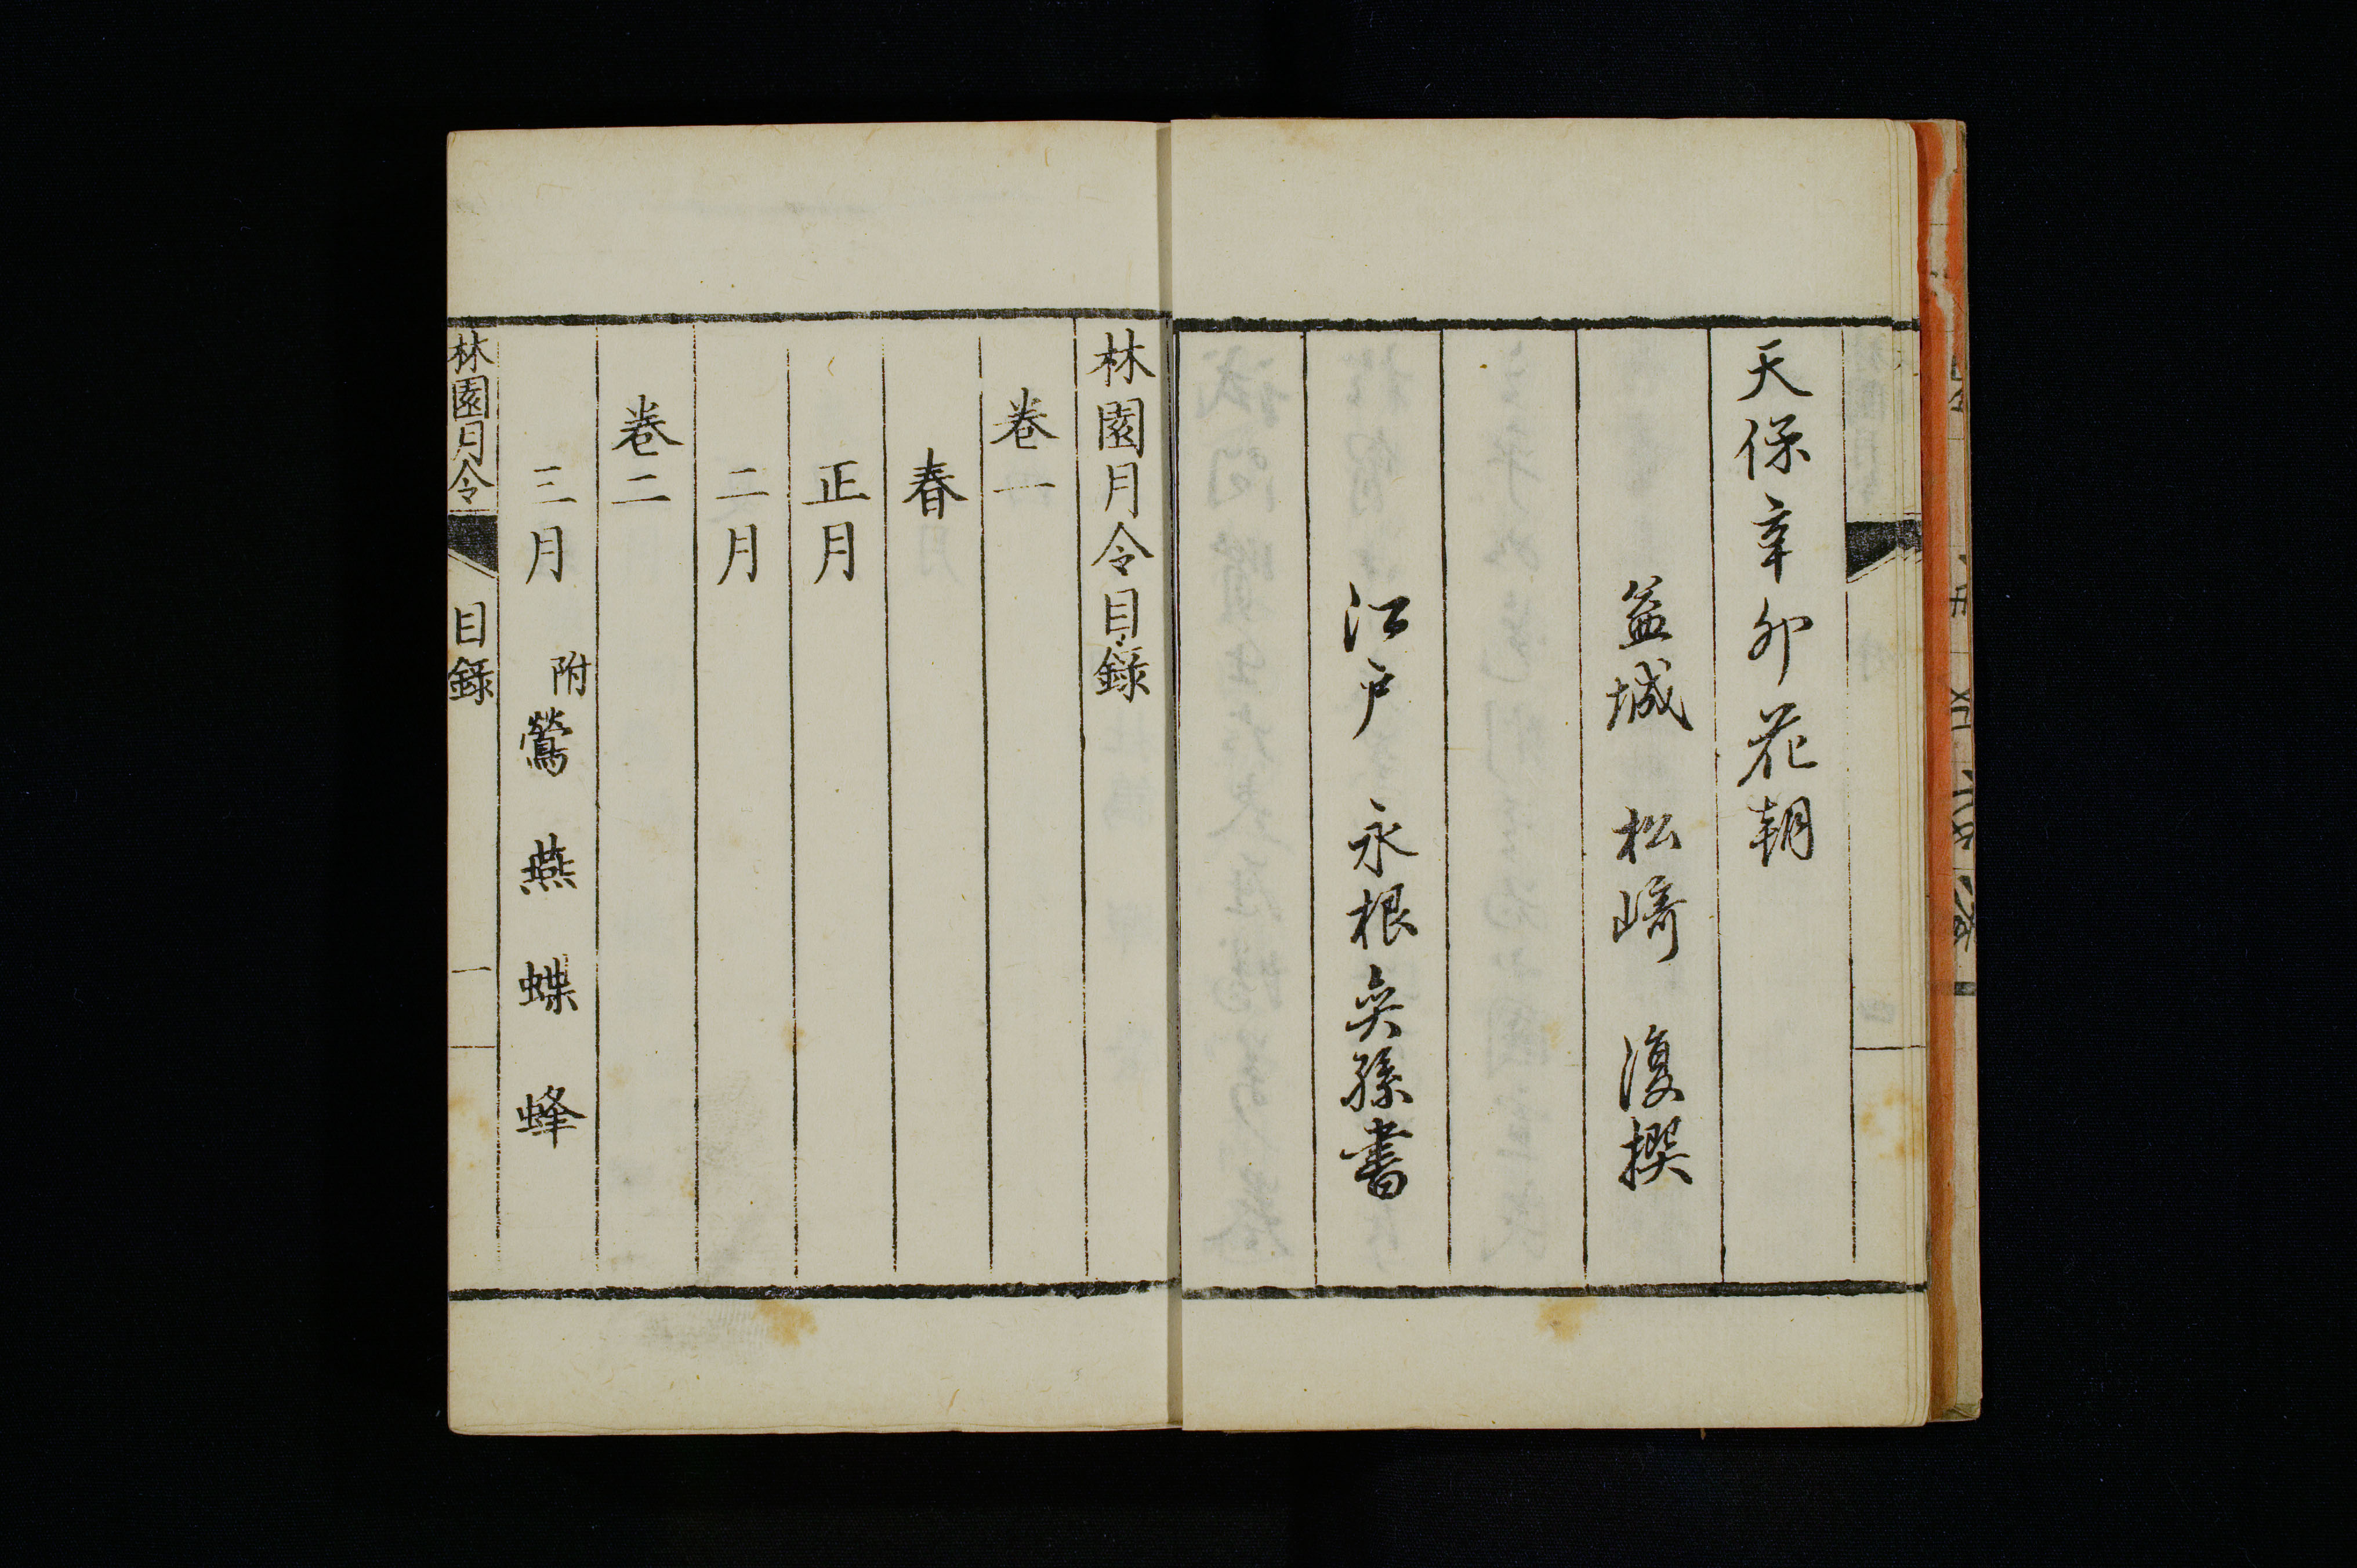 天保辛卯花朝
益城 松﨑 復撰
江戸 永根奕孫書
林園月令目錄
卷一
春
正月
二月
卷二
三月 附鶯 燕 蝶 蜂
林園月令 目錄 一